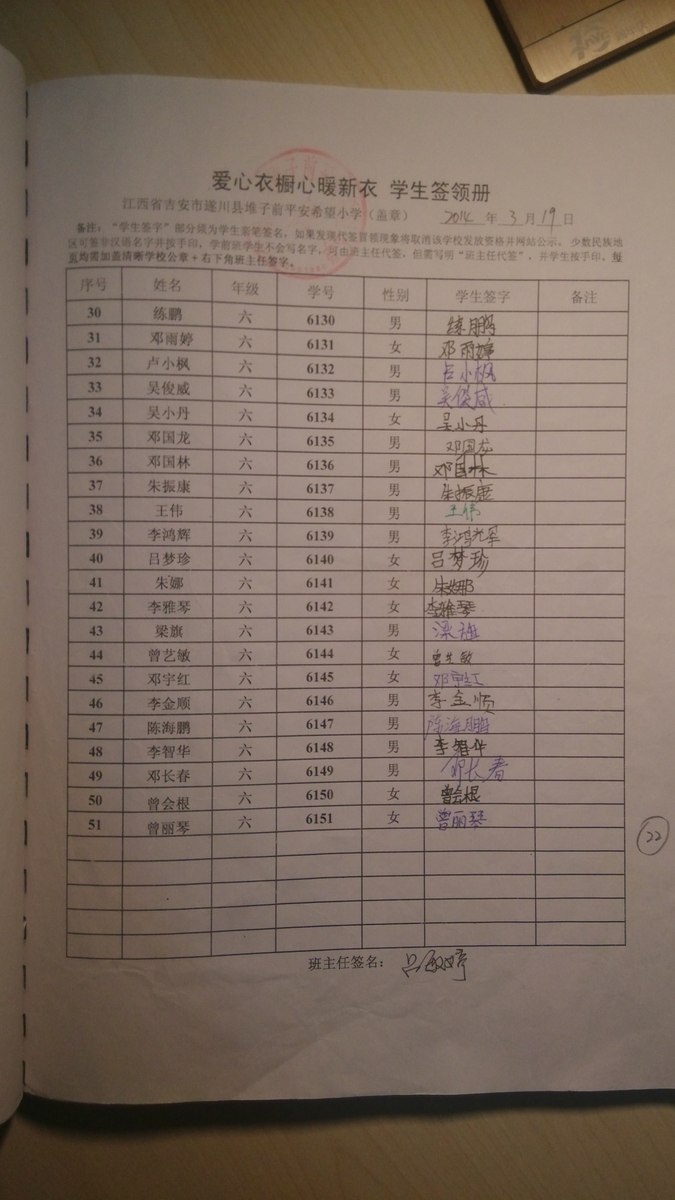 爱心衣橱心暖新衣 学生签领册
江西省吉安市遂川县堆子前平安希望小学（盖章） 2014 年 3 月 19 日
备注：“学生签字”部分须为学生亲笔签名，如果发现代签冒领现象将取消该学校发放资格并网站公示，少数民族地
区可签非汉语名字并按手印，学前班学生不会写名字，可由班主任代签，但需写明“班主任代签”，并学生按手印，每
页均需加盖清晰学校公章+右下角班主任签字。
序号 姓名 年级 学号 性别 学生签字 备注
30 练鹏 六 6130 男 练鹏
31 邓雨婷 六 6131 女 邓雨婷
32 卢小枫 六 6132 男 卢小枫
33 吴俊威 六 6133 男 吴俊威
34 吴小丹 六 6134 女 吴小丹
35 邓国龙 六 6135 男 邓国龙
36 邓国林 六 6136 男 邓国林
37 朱振康 六 6137 男 朱振康
38 王伟 六 6138 男 王伟
39 李鸿辉 六 6139 男 李鸿辉
40 吕梦珍 六 6140 女 吕梦珍
41 朱娜 六 6141 女 朱娜
42 李雅琴 六 6142 女 李雅琴
43 梁旗 六 6143 男
44 曾艺敏 六 6144 女 曾艺敏
45 邓宇红 六 6145 女 邓宇红
46 李金顺 六 6146 男 李金顺
47 陈海鹏 六 6147 男 陈海鹏
48 李智华 六 6148 男 李智华
49 邓长春 六 6149 男 邓长春
50 曾会根 六 6150 女 曾会根
51 曾丽琴 六 6151 女 曾丽琴
22
班主任签名：